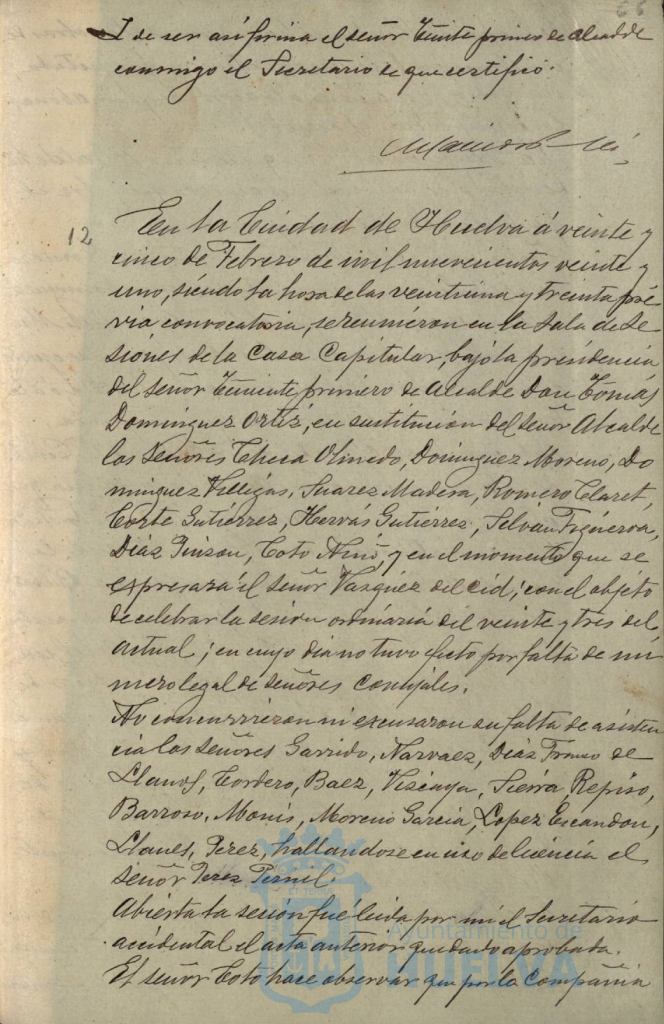 66
I de ser así firma el señor Teniente primero de Alcalde
conmigo el Secretario de que certifico.
12
En la Ciudad de Huelva á veinte y
cinco de Febrero de mil novecientos veinte y
uno, siendo la hora de las veintiuna y treinta pré
via convocatoria, se reunieron en la Sala de Se
siones de la Casa Capitular, bajo la presidencia
del señor Teniente primero de Alcalde Don Tomás
Dominguez Ortiz, en sustitución del señor Alcalde
los Señores Checa Olmedo, Dominguez Moreno, Do
minguez Villegas, Suarez Madera, Romero Claret,
Corte Gutiérrez, Hervás Gutiérrez, Selván Figueroa,
Diáz Pinzon, Coto Niño, y en el momento que se
expresará el señor Vasquez del Cid; con el objeto
de celebrar la sesion ordinaria del veinte y tres del
actual; en cuyo dia no tuvo efecto por falta de nú
mero legal de señores Concejales.
No concurrieron ni excusaron su falta de asisten
cia los Señores Garrido, Narvaez, Diáz Franco de
Llanos, Cordero, Baez, Viscaya, Sierra, Repiso,
Barroso, Monis, Moreno Garcia, Lopez Escandon,
Llanes, Perez, hallandose en uso de licencia el
señor Perez Pernil.
Abierta la sesión fué leida por mi el Secretario
accidental el acta anterior quedando aprobada.
El señor Coto hace observar que por la Compañia
Ayuntamiento de
HUELVA